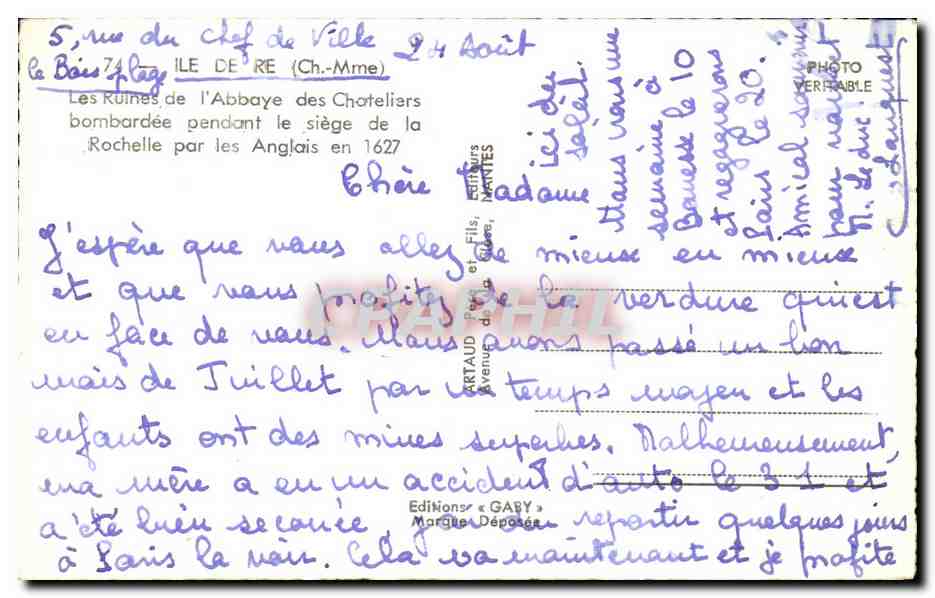 5, rue du Chef de Ville 24 Août
le Bois plage
74 - ILE DE RE (Ch.-Mme)
Les Ruines de l'Abbaye des Chateliers
bombardée pendant le siège de la
Rochelle par les Anglais en 1627
PHOTO
VERITABLE
Chère Madame
J'espère que vous allez de mieux en mieux
et que vous profitez de la verdure qui est
en face de vous. Nous avons passé un bon
mois de Juillet par un temps moyen et les
enfants ont des mines superbes. Malheureusement,
ma mère a eu un accident d'auto le 31 et
a été bien secouée, j'ai dû repartir quelques jours
à Paris la voir. Cela va maintenant et je profite
ici du
soleil.
Nous
semaine à
le 10
et regagnerons
Paris le 20.
Amical souvenir
pour vous et
M. Leduc.
ARTAUD Père et Fils, Editeurs
Avenue de la Close, NANTES
Editions « GABY »
Marque Déposée
CPAPHIL